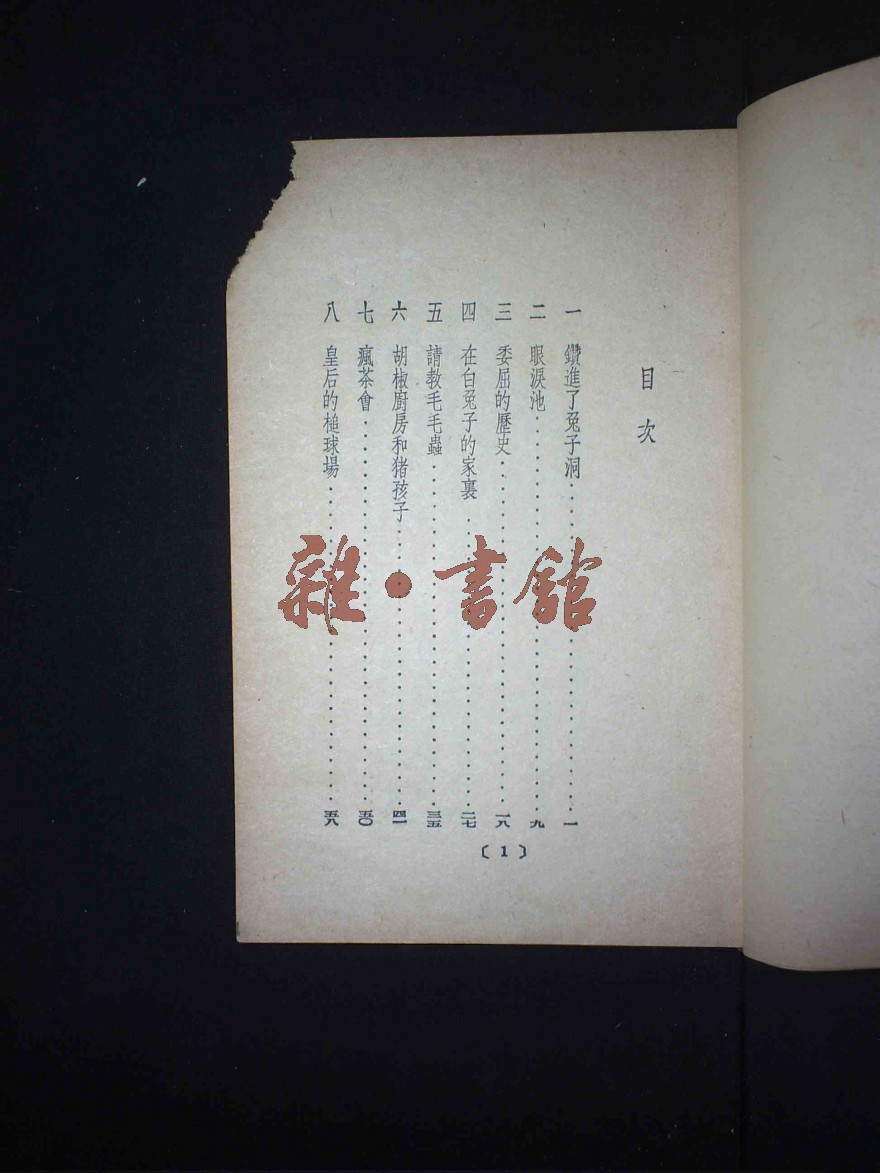 目次
一 鑽進了兔子洞……一
二 眼淚池……九
三 委屈的歷史……一八
四 在白兔子的家裏……二七
五 請教毛毛蟲……三五
六 胡椒廚房和猪孩子……四一
七 瘋茶會……五〇
八 皇后的槌球場……五八
〔1〕
雜·書館